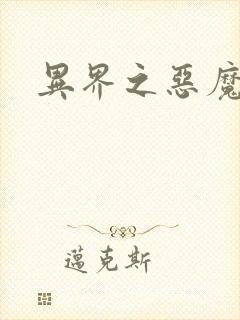 異界之惡魔
邁克斯